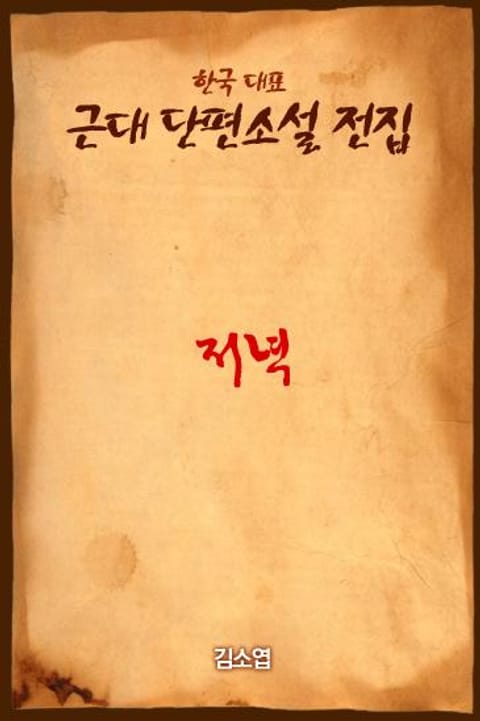 한국 대표
근대 단편소설 전집
저녁
김소엽